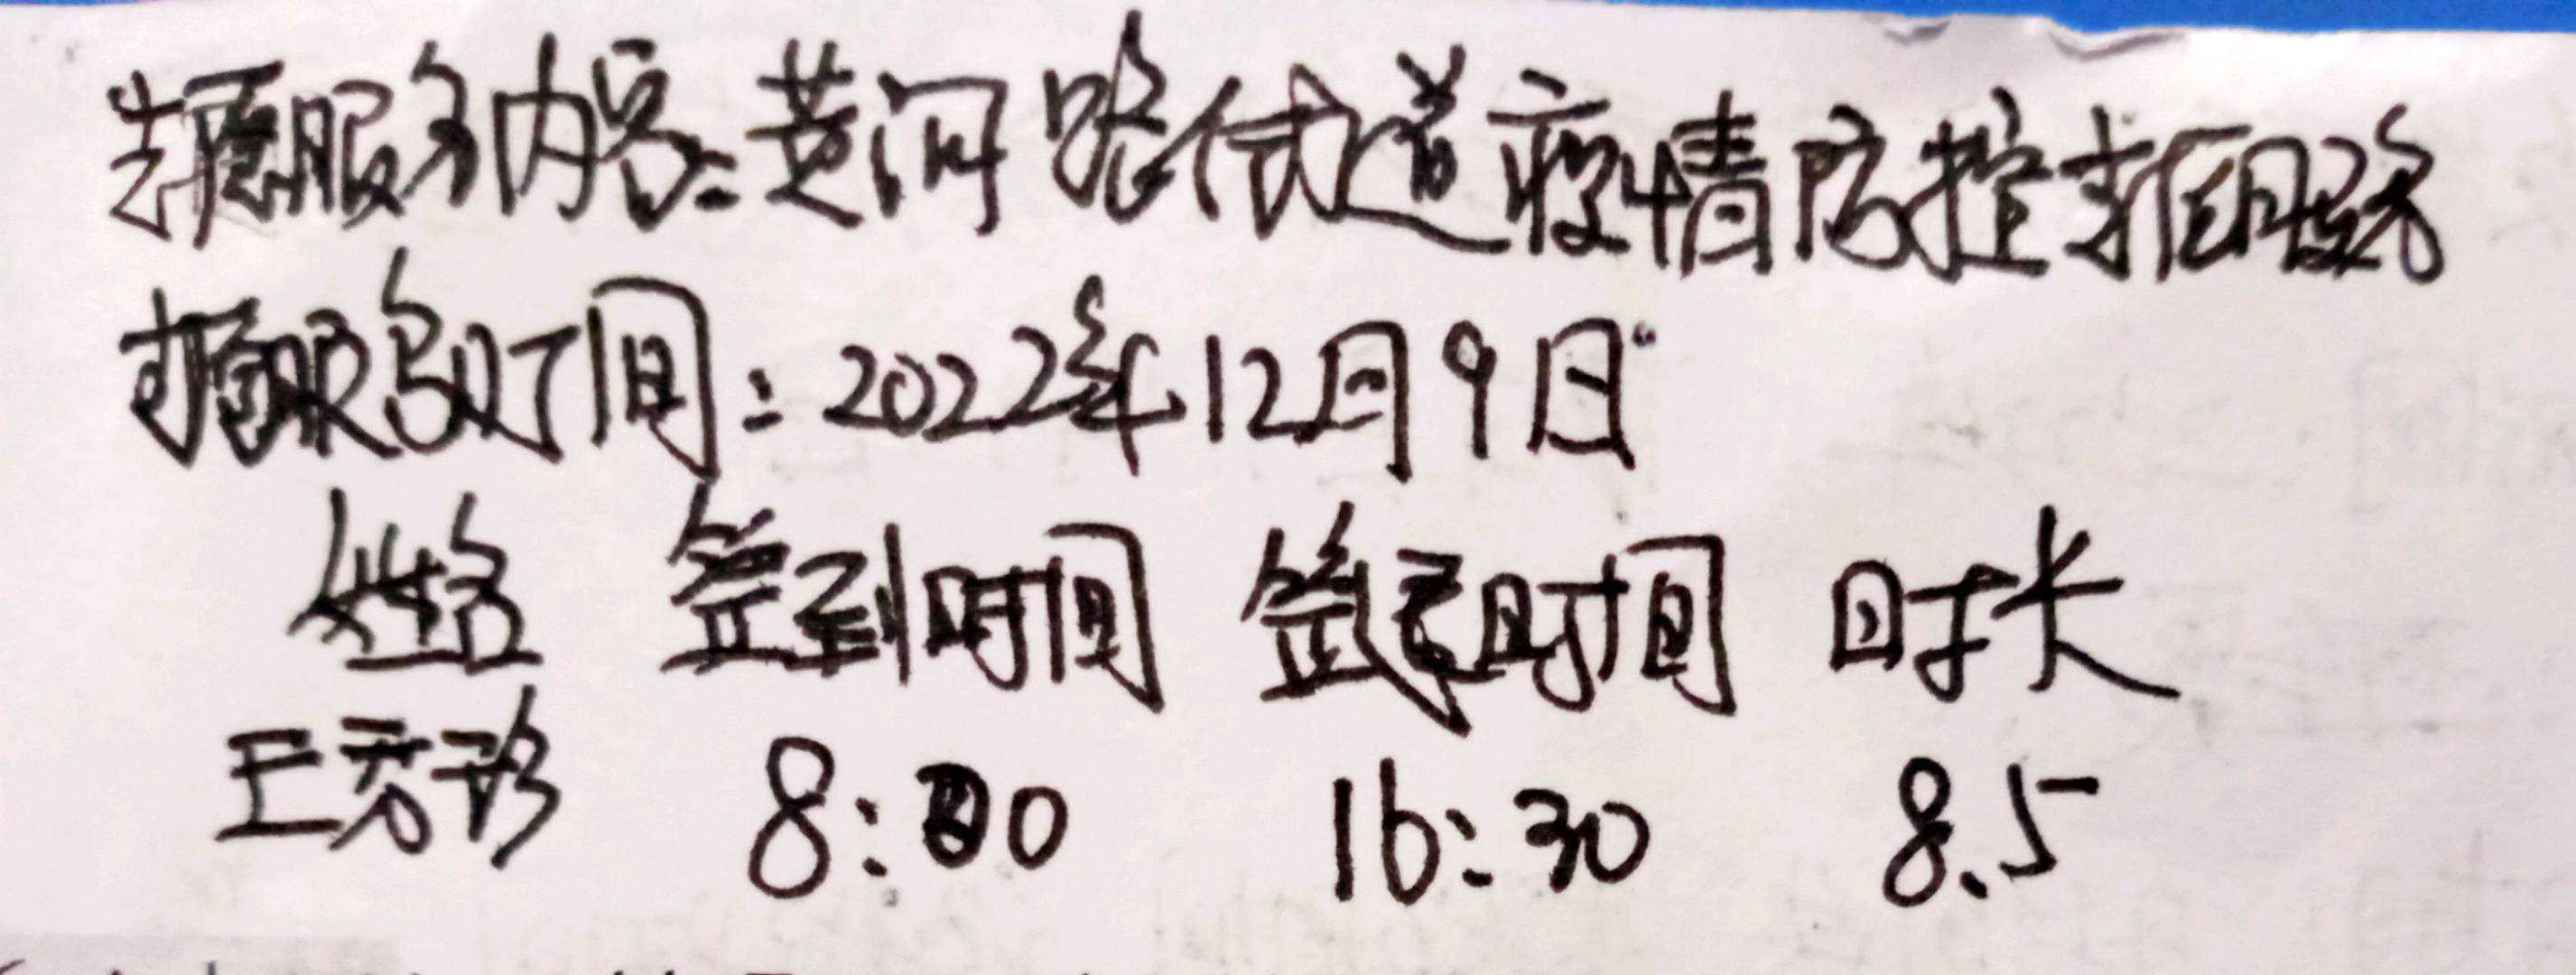 志愿服务内容:黄河路街道疫情防控志愿服务
志愿服务时间:2022年12月9日
姓名 签到时间 签退时间 时长
王秀彦 8:00 16:30 8.5